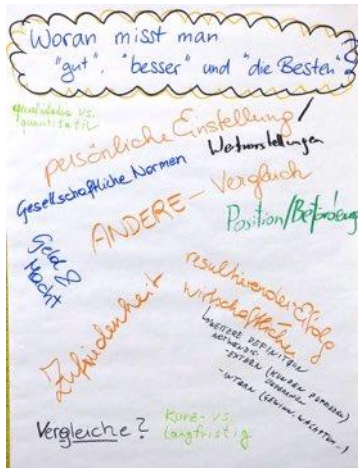 Woran misst man
"gut", "besser" und "die Besten"
qualitativ vs.
quantitativ
persönliche Einstellung /
Wertvorstellungen
Gesellschaftliche Normen
ANDERE - Vergleich
Position/Beförderung
Geld &
Macht
Zufriedenheit
resultierender Erfolg
wirtschaftlicher
WEITERE DEFINITION
NOTWENDIG
-EXTERN (KUNDEN
-INTERN (GEWINN, WACHSTUM-)
Vergleiche?
Kurz- vs.
langfristig